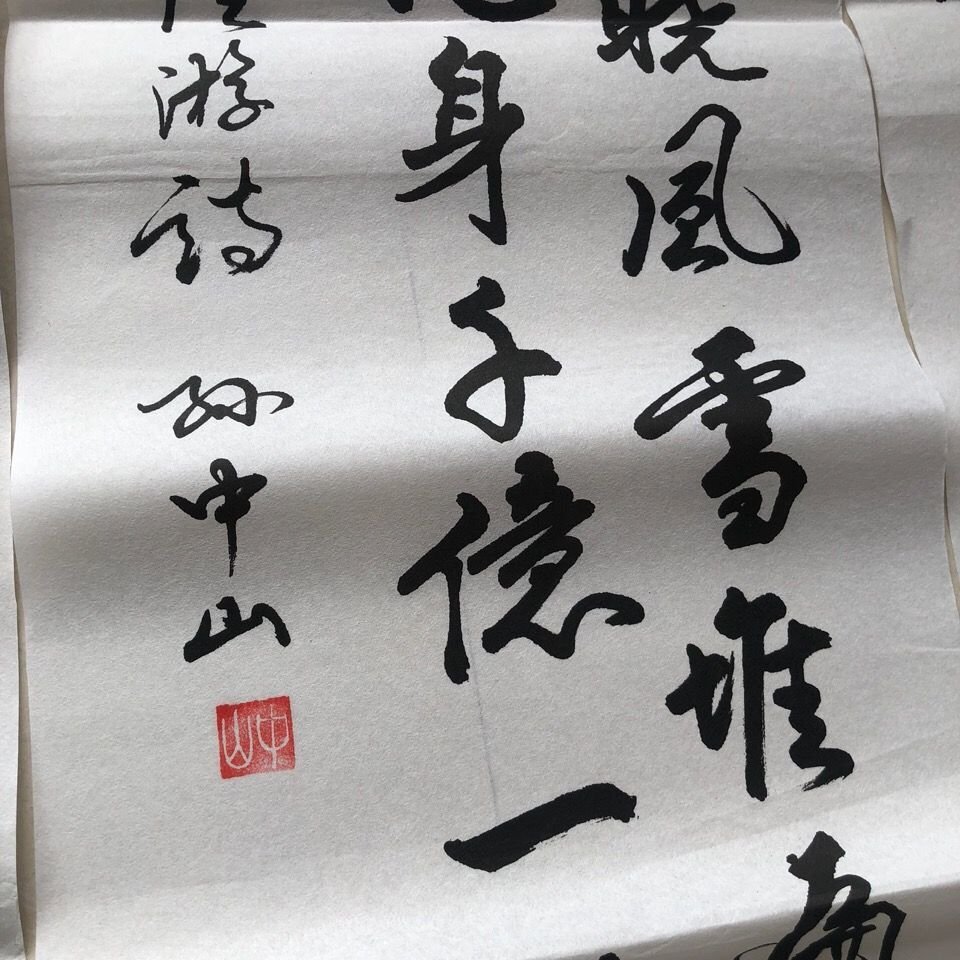 曉風雪堆遍
身千億一
游詩 孫中山
中山